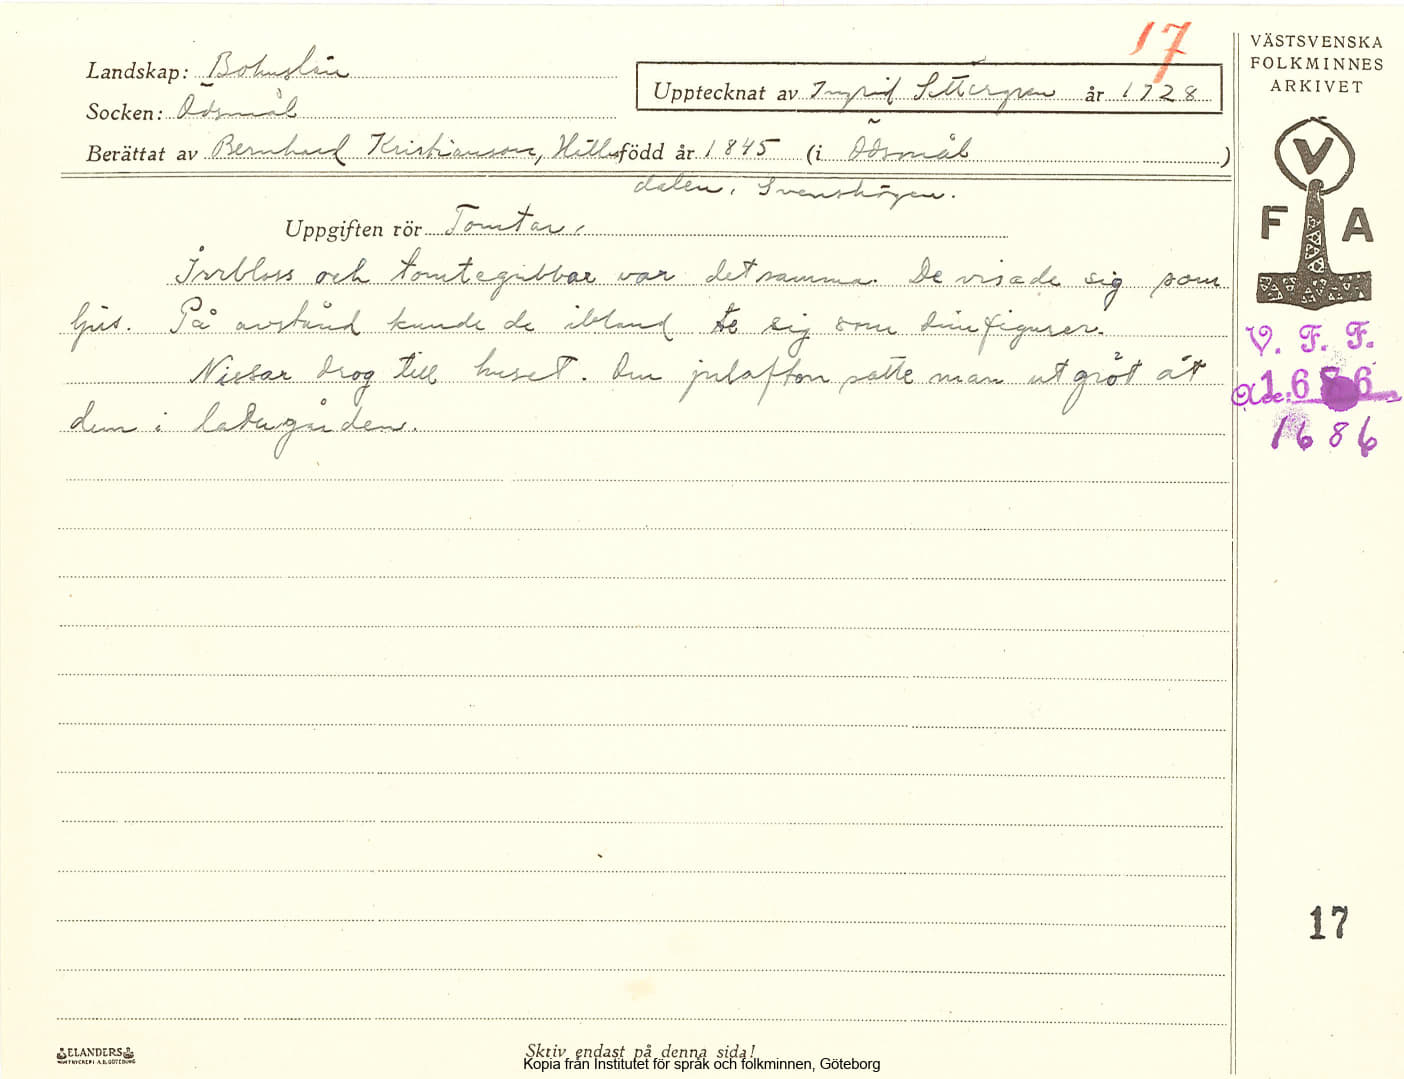 17
VÄSTSVENSKA
FOLKMINNES
ARKIVET
Landskap: Bohuslän
Upptecknat av Ingrid Settergren år 1928
Socken: Ödsmål
Berättat av Bernhard Kristianson, Hälle- född år 1845 (i Ödsmål )
dalen, Svenshögen.
Uppgiften rör Tomtar.
Irrbloss och tomtegubbar var detsamma. De visade sig som
ljus. På avstånd kunde de ibland te sig som dimfigurer.
Nissar drog till huset. Om julafton satte man ut gröt åt
dem i ladugården.
V F A
V. F. F.
Acc: 1686
1686
17
ELANDERS
Skriv endast på denna sida!
Kopia från Institutet för språk och folkminnen, Göteborg